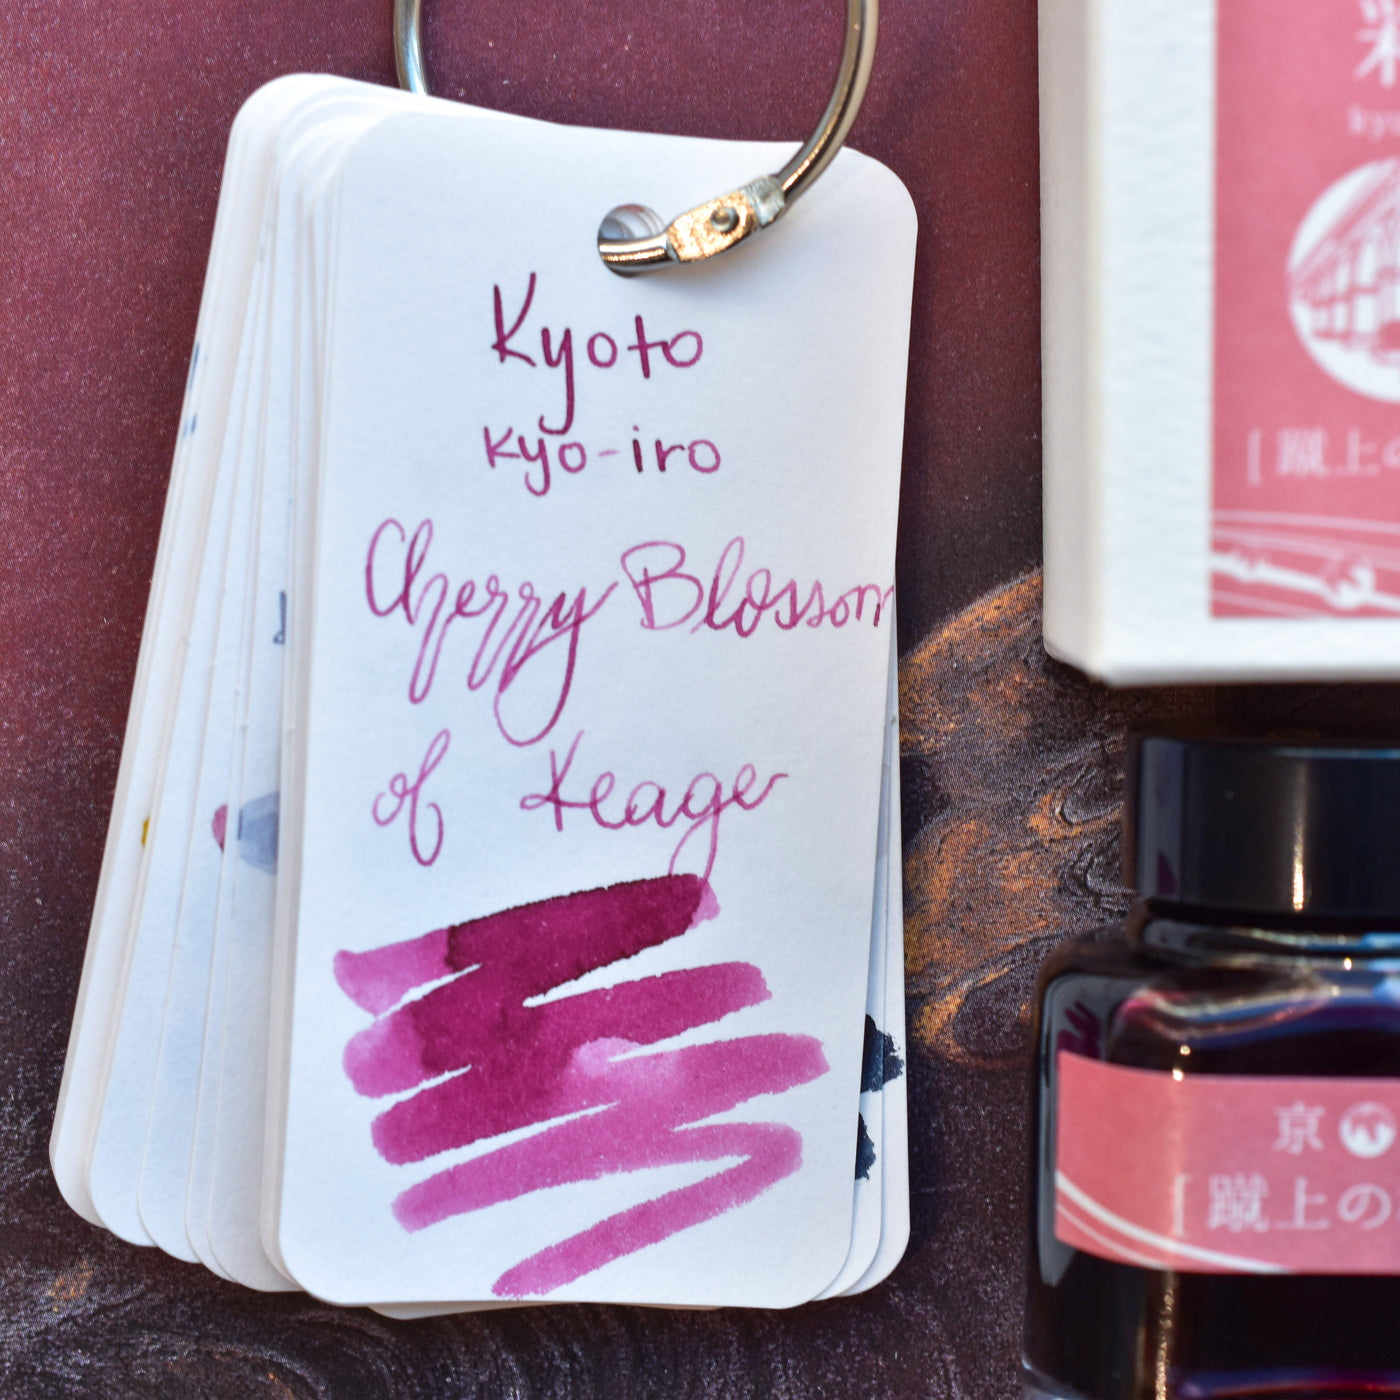 Kyoto
kyo-iro
Cherry Blossom
of Keage
彩
ky
[ 蹴上の
京
[ 蹴上の